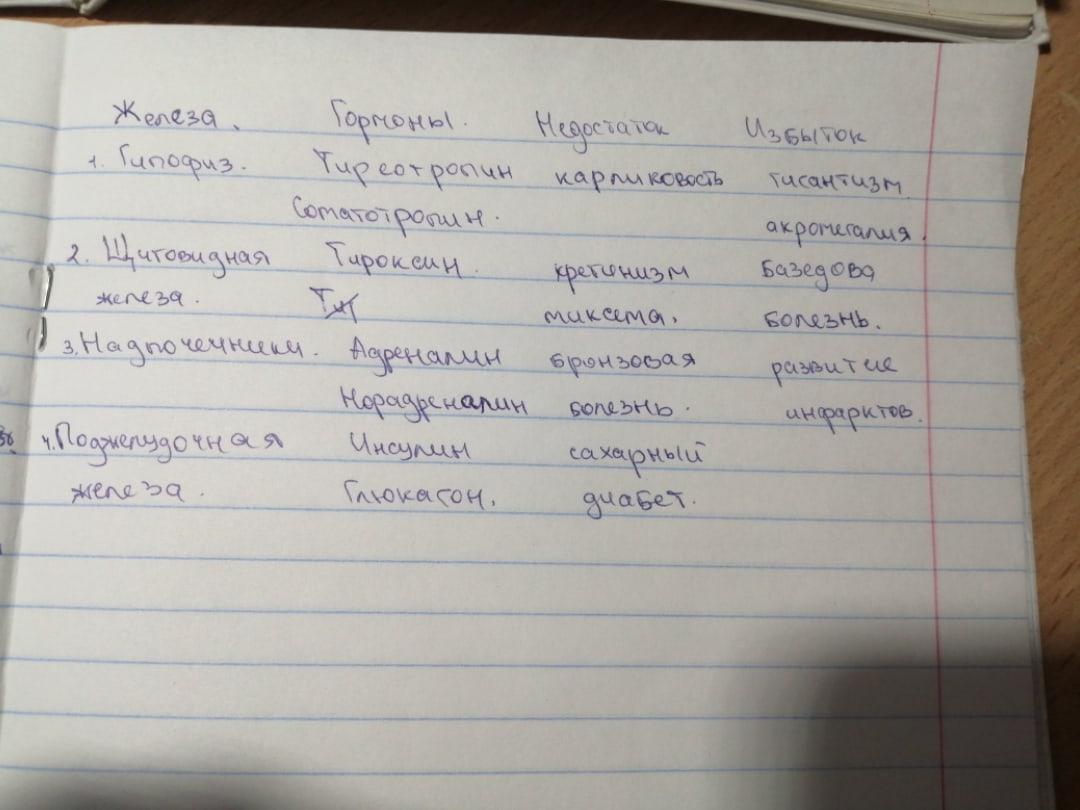 Железа. Гормоны. Недостаток Избыток
1. Гипофиз. Тиреотропин карликовость гигантизм
Соматотропин. акромегалия.
2. Щитовидная Тироксин. кретинизм базедова
железа. миксема. болезнь.
3. Надпочечники. Адреналин бронзовая развитие
Норадреналин болезнь. инфарктов.
4. Поджелудочная Инсулин сахарный
железа. Глюкагон. диабет.